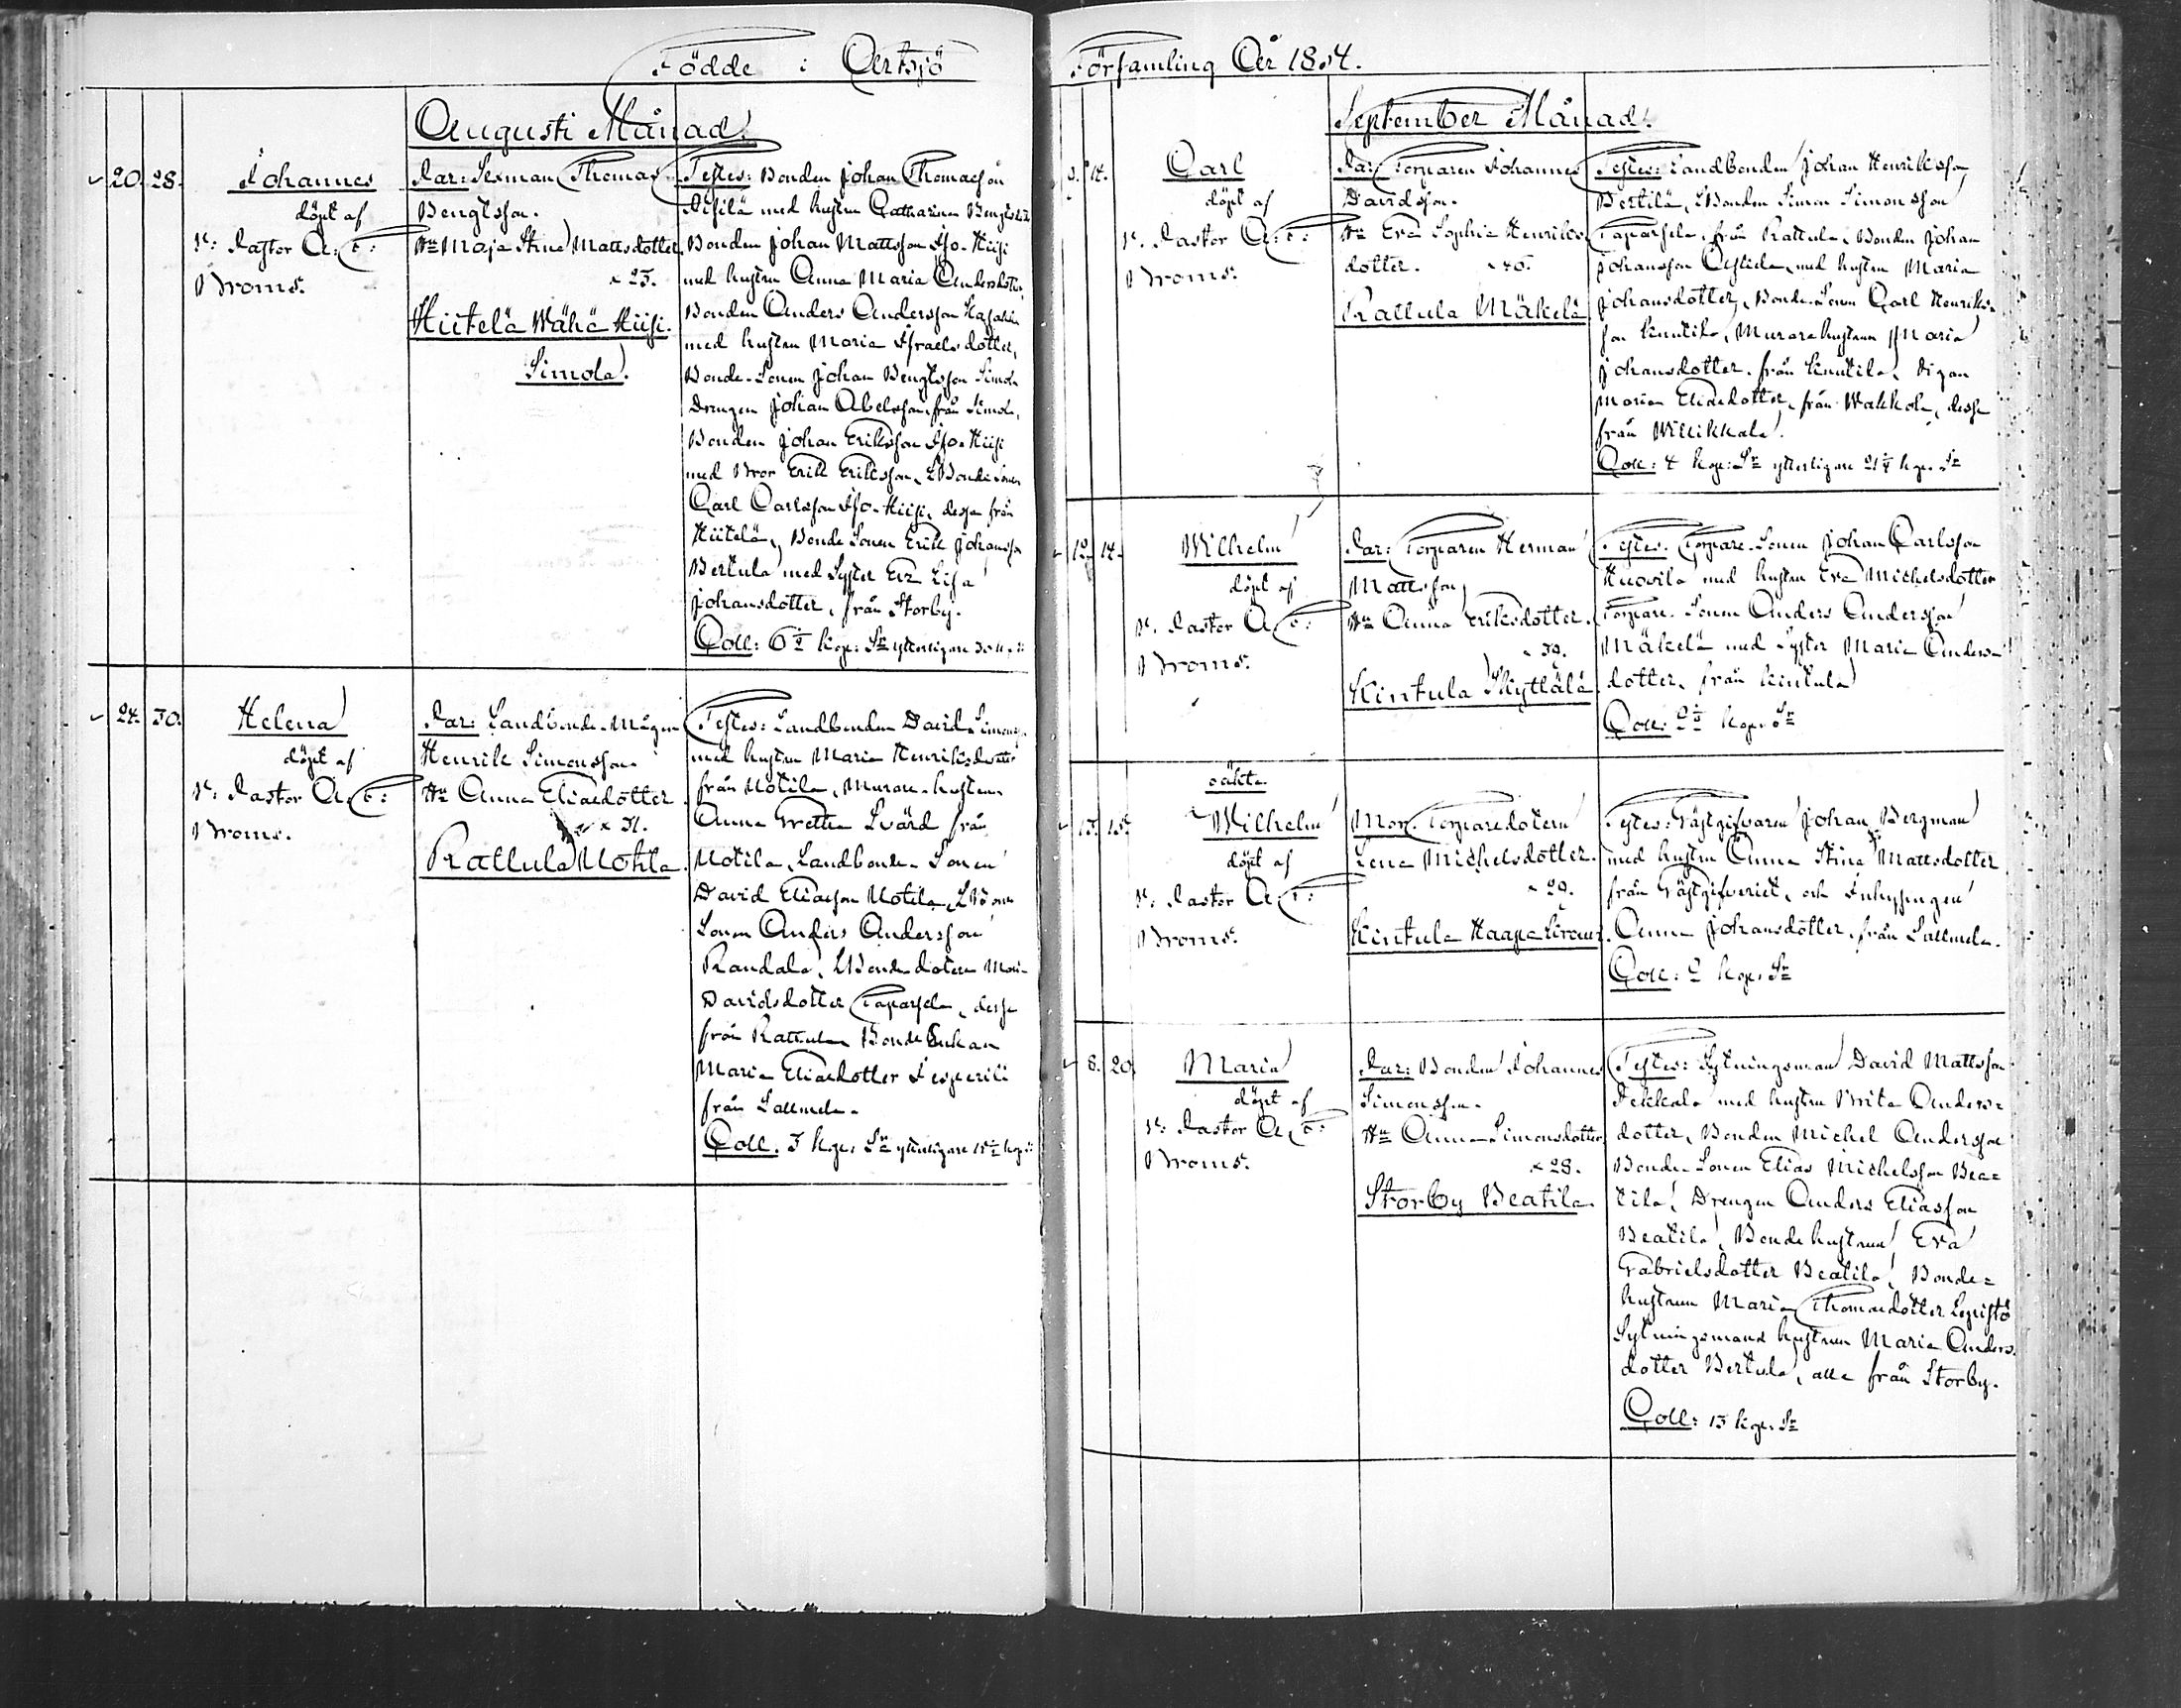 Födde i Artsjö
Augusti Månad.
20. 28. Johannes
döpt af
v. Pastor A. F.
Broms.
Far: Sexman Thomas
Bengtsson.
Hu Maja Stina Mattsdotter
23.
Hiitelä Wähä Hiisi.
Simola.
Testes: Bonden Johan Thomasson
med hustru Catharina
Bonden Johan Mattsson Iso-Hiisi
med hustru Anna Maria Andersdotter,
Bonden Anders Andersson
med hustru Maria Israelsdotter,
Bonde-Sonen Johan Bengtsson Simola
Drengen Johan Abelsson från Simola,
Bonden Johan Eriksson Iso-Hiisi
med Bror Erik Eriksson,
Carl Carlsson Iso-Hiisi, dessa från
Hiitelä, Bonde Sonen Erik Johansson
Bertula med Syster Eva Lisa
Johansdotter, från Storby.
Coll: kop: Sr ytterligare
24. 30. Helena
döpt af
v. Pastor A. F.
Broms.
Far: Landbonde-Mågen
Henrik Simonsson.
Hu Anna Eliædotter
31.
Rattula Uotila.
Testes: Landbonden David
med hustru Maria Henriksdotter
från Uotila, Murare-hustrun
Anna Gretha Svärd från
Uotila, Landbonde-Sonen
David Eliasson Uotila,
Sonen Anders Andersson
Randala,
Davidsdotter, dessa
från Rattula Bonde Enkan
Maria Eliædotter
från Sallmela.
Coll. 3 kop. Sr ytterligare
Församling År 1854.
September Månad.
3. 14. Carl
döpt af
v. Pastor A. F.
Broms.
Far: Torparen Johannes
Davidsson.
Hu Eva Sophia Henriks
dotter.
Rattula Mäkelä
Testes: Landbonden Johan Henriksson
Bertilä, Bonden Simon Simonsson
från Rattula, Bonden Johan
Johansson med hustru Maria
Johansdotter, Bonde-Sonen Carl Henriks-
son Knutila, Murarehustrun Maria
Johansdotter från Knutila, Pigan
Maria Eliædotter, från Wakkola, dessa
från Willikkala.
Coll: 4 kop: Sr ytterligare kop. Sr
12. 14. Wilhelm
döpt af
v. Pastor A. F.
Broms.
Far: Torparen Herman
Mattsson,
Hu Anna Eriksdotter.
39.
Kintula
Testes. Torpare-Sonen Johan Carlsson
Huovila med hustru Eva Michelsdotter
Torpare-Sonen Anders Andersson
Mäkelä med Syster Maria Anders-
dotter, från Kintula
Coll: kop. Sr
oäkta.
13. 15. Wilhelm
döpt af
v. Pastor A. F.
Broms.
Mor. Torparedotern
Lena Michelsdotter.
29.
Kintula
Testes: Gästgifvaren Johan Bergman
med hustru Anna Stina Mattsdotter
från Gästgifveriet, och Inhysingen
Anna Johansdotter, från Sallmela.
Coll: 2 kop. Sr
8. 20. Maria
döpt af
v. Pastor A. F.
Broms.
Far: Bonden Johannes
Simonsson.
Hu Anna Simonsdotter
28.
Storby Beatila.
Testes: Sytningsman David Mattsson
Pekkala med hustru Brita Anders-
dotter, Bonden Michel Andersson
Bonde-Sonen Elias Michelsson Bea-
tila, Drengen Anders Eliasson
Beatila, Bonde hustrun Eva
Gabrielsdotter Beatila, Bonde-
hustrun Maria Thomædotter
Sytningsmans hustrun Maria Anders-
dotter Bertula, alla från Storby.
Coll: 13 kop. Sr